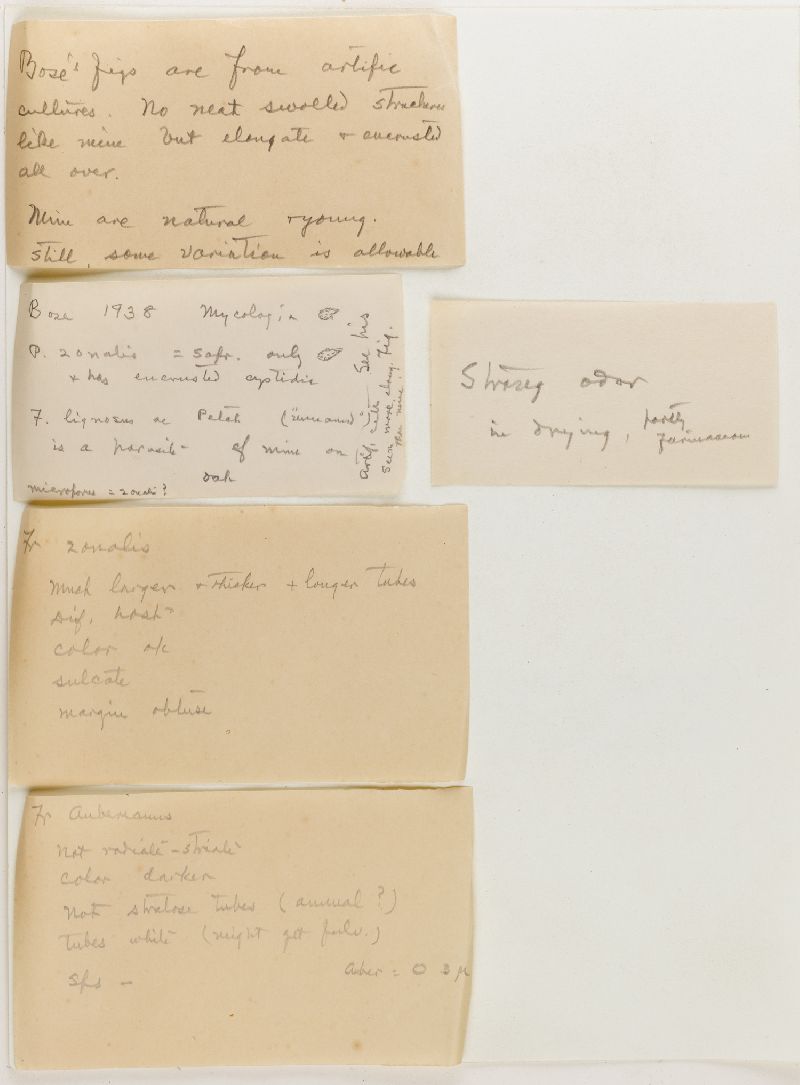 Bose's figs are from artific
cultures. No neat swolled structures
like mine but elongate & encrusted
all over.
Mine are natural & young.
Still, some variation is allowable
Bose 1938 Mycologia
P. zonalis = Sapr. only
& has encrusted cystidia
F. lignosus ac Petch
is a parasite of mine on
oak
microporus = zonalis?
artif. cult. See his
seem more elong. fig.
than mine.
Strong odor
in drying, partly
farinaceous
Fr zonalis
Much larger & thicker + longer tubes
Dif. host
color ok
sulcate
margin obtuse
Fr Auberianus
Not radiate-striate
color darker
Not stratose tubes (annual?)
tubes white (might get pulv.)
Sps —
Auber = O 3 µ